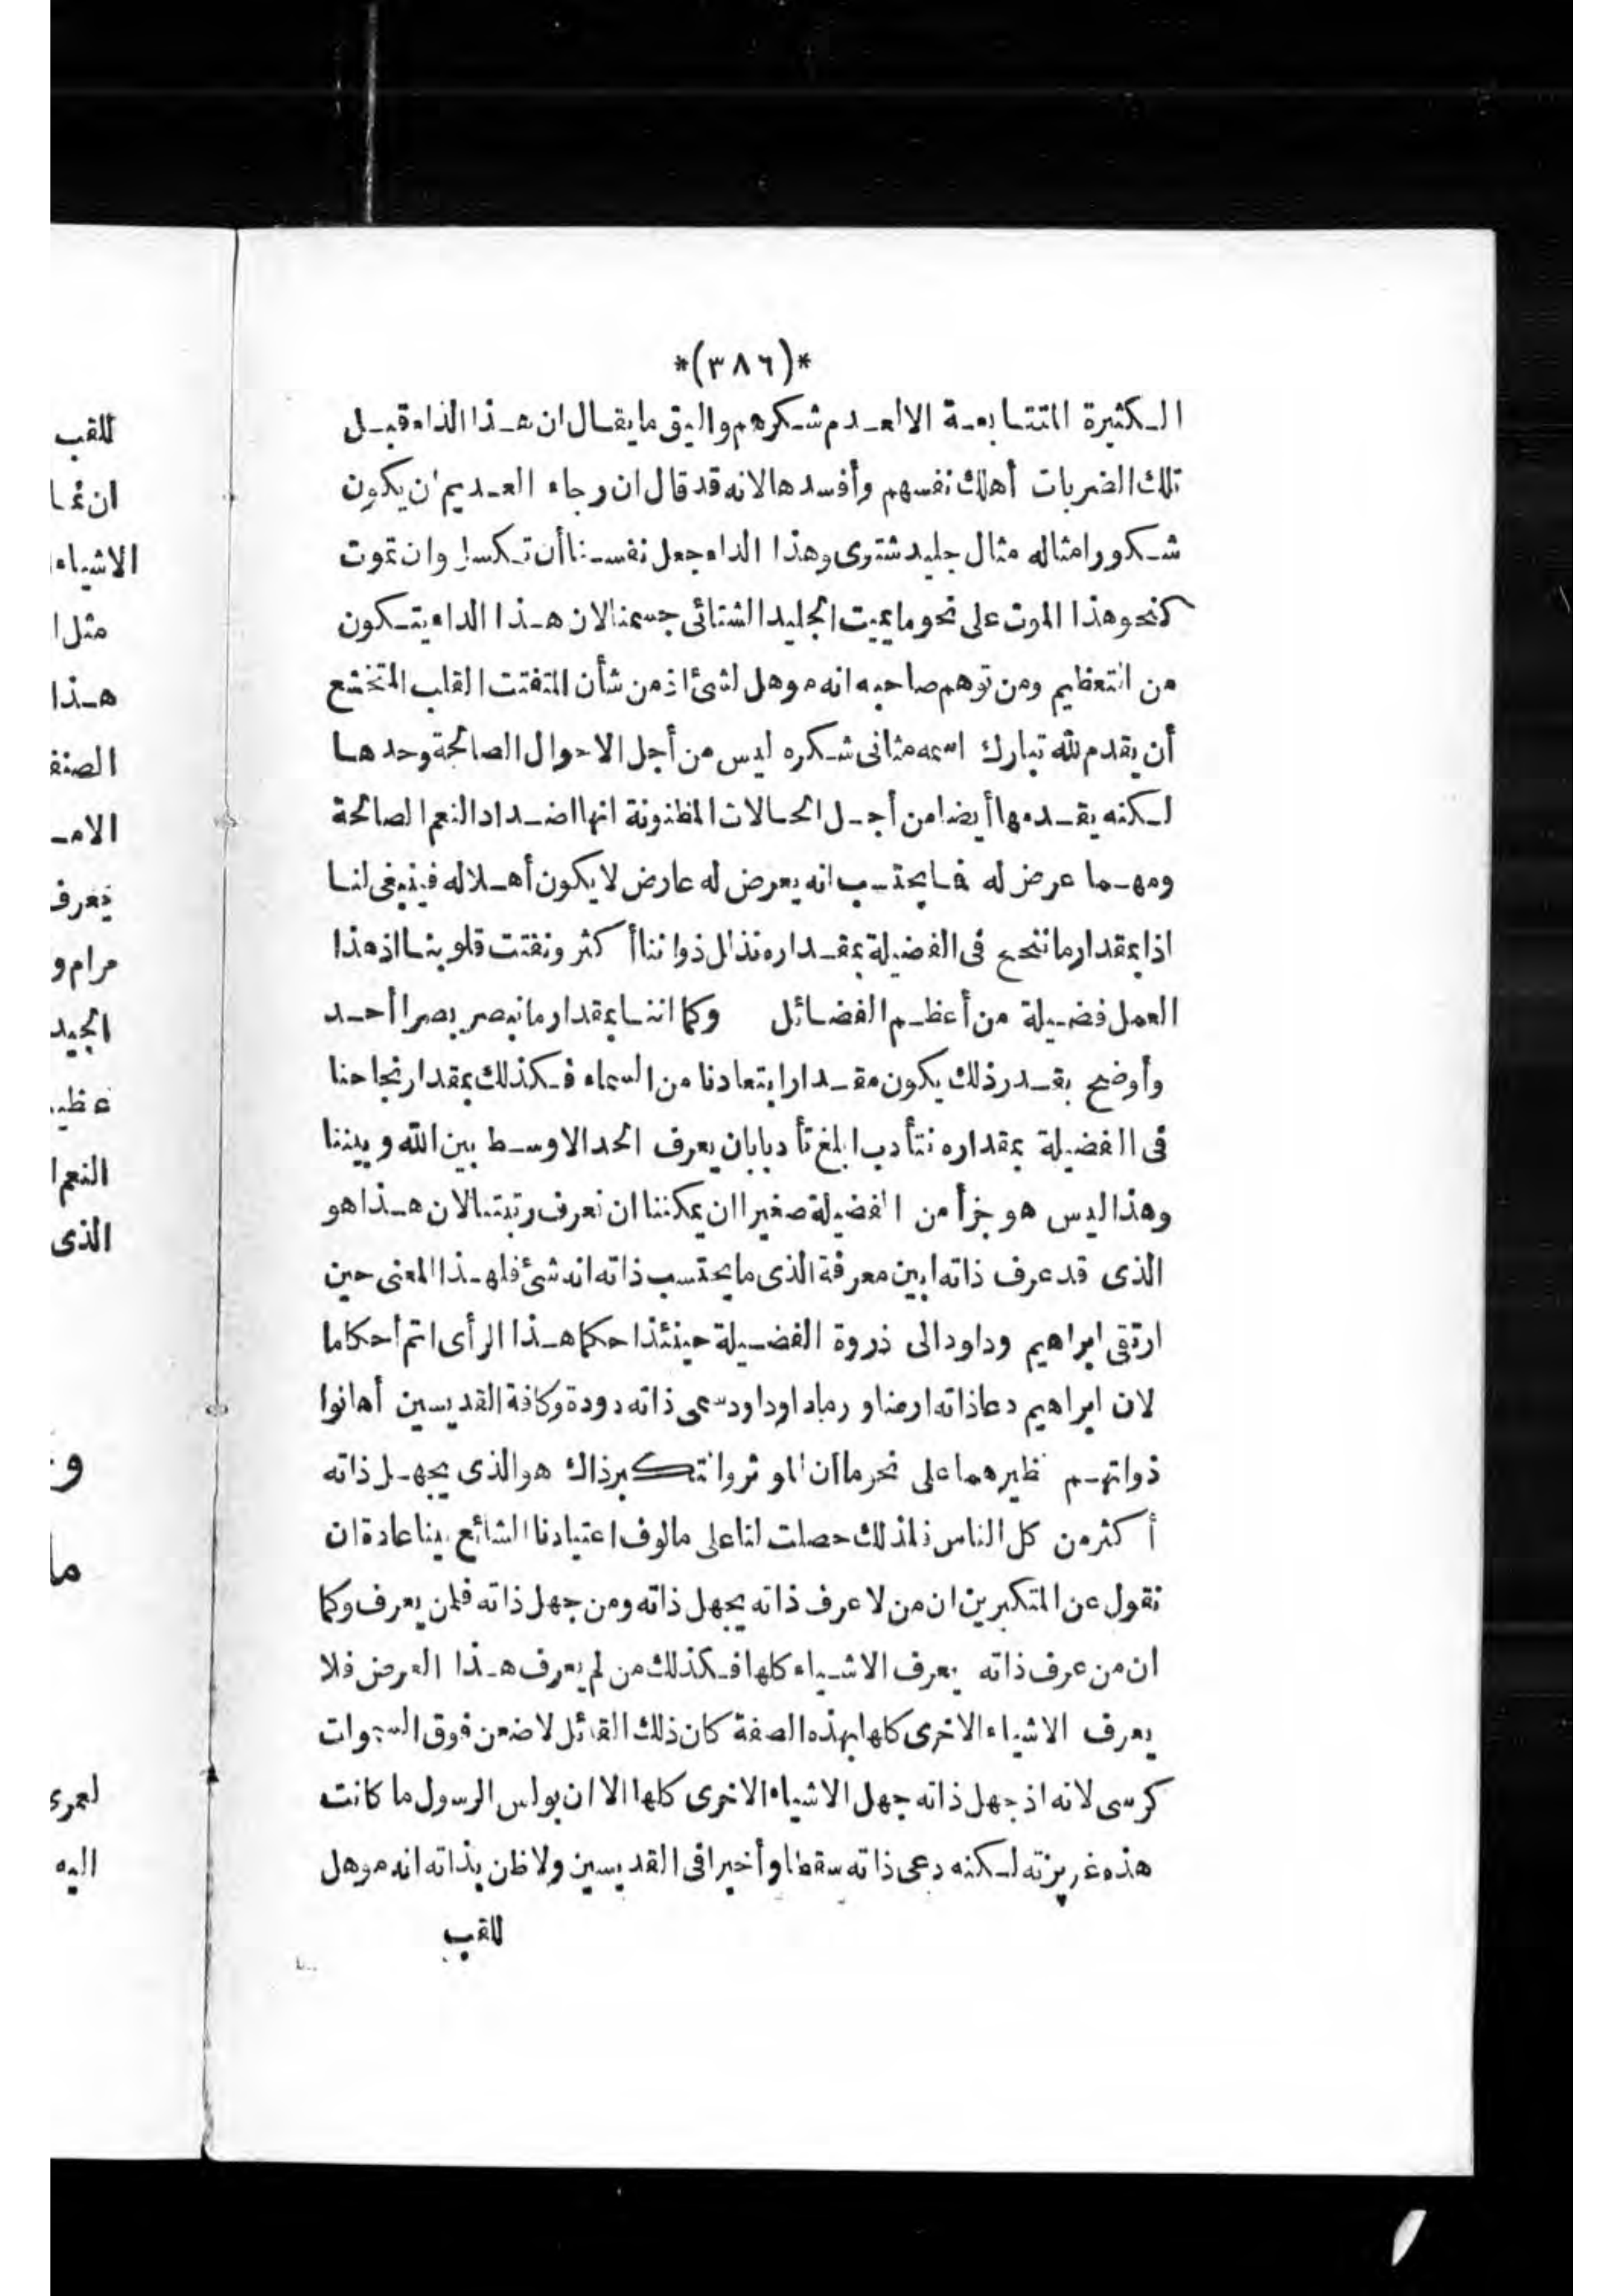 *(٣٨٦)*
الكثيرة المتتابعة الا لعدم شكرهم واليق ما يقال ان هذا الداء قبل
تلك الضربات أهلك نفسهم وأفسدها لانه قد قال ان رجاء العديم ان يكون
شكورا مثاله مثال جليد شتوى وهذا الداء جعل نفسنا أن تكسل وان تموت
كنحو هذا الموت على نحو ما يميت الجليد الشتائى جسمنا لان هذا الداء يتكون
من التعظيم ومن توهم صاحبه انه موهل لشئ اذ من شأن المتفتت القلب المتخشع
أن يقدم لله تبارك اسمه مثانى شكره ليس من أجل الاحوال الصالحة وحدها
لكنه يقدمها أيضا من أجل الحالات المظنونة انها اضداد النعم الصالحة
ومهما عرض له فما يحتسب انه يعرض له عارض لا يكون أهلا له فينبغى لنا
اذا بمقدار ما ننجح فى الفضيلة بمقداره نذلل ذواتنا أكثر ونفتت قلوبنا اذ هذا
العمل فضيلة من أعظم الفضائل وكما اننا بمقدار ما نبصر بصرا أحد
وأوضح بقدر ذلك يكون مقدار ابتعادنا من السماء فكذلك بمقدار نجاحنا
فى الفضيلة بمقداره نتأدب ابلغ تأدبا بان يعرف الحد الاوسط بين الله وبيننا
وهذا ليس هو جزأ من الفضيلة صغيرا ان يمكننا ان نعرف رتبتنا لان هذا هو
الذى قد عرف ذاته ابين معرفة الذى ما يحتسب ذاته انه شئ فلهذا المعنى حين
ارتقى ابراهيم وداود الى ذروة الفضيلة حينئذ احكما هذا الرأى اتم أحكاما
لان ابراهيم دعا ذاته ارضا و رمادا وداود سمى ذاته دودة وكافة القديسين أهانوا
ذواتهم نظيرهما على نحو ما ان الموثر التكبر ذاك هو الذى يجهل ذاته
أكثر من كل الناس فلذلك حصلت لنا على مالوف اعتيادنا الشائع بيننا عادة ان
نقول عن المتكبرين ان من لا عرف ذاته يجهل ذاته ومن جهل ذاته فلن يعرف وكما
ان من عرف ذاته يعرف الاشياء كلها فكذلك من لم يعرف هذا العرض فلا
يعرف الاشياء الاخرى كلها بهذه الصفة كان ذلك القائل لاضعن فوق السموات
كرسى لانه اذ جهل ذاته جهل الاشياء الاخرى كلها الا ان بولس الرسول ما كانت
هذه غريزته لكنه دعى ذاته سقطا وأخيرا فى القديسين ولا ظن بذاته انه موهل
للقب
للقب
الاشياء
مثل ا
هذا
الامـ
مرام و
الجيد
النعم ا
الذى
لعمرى
اليه